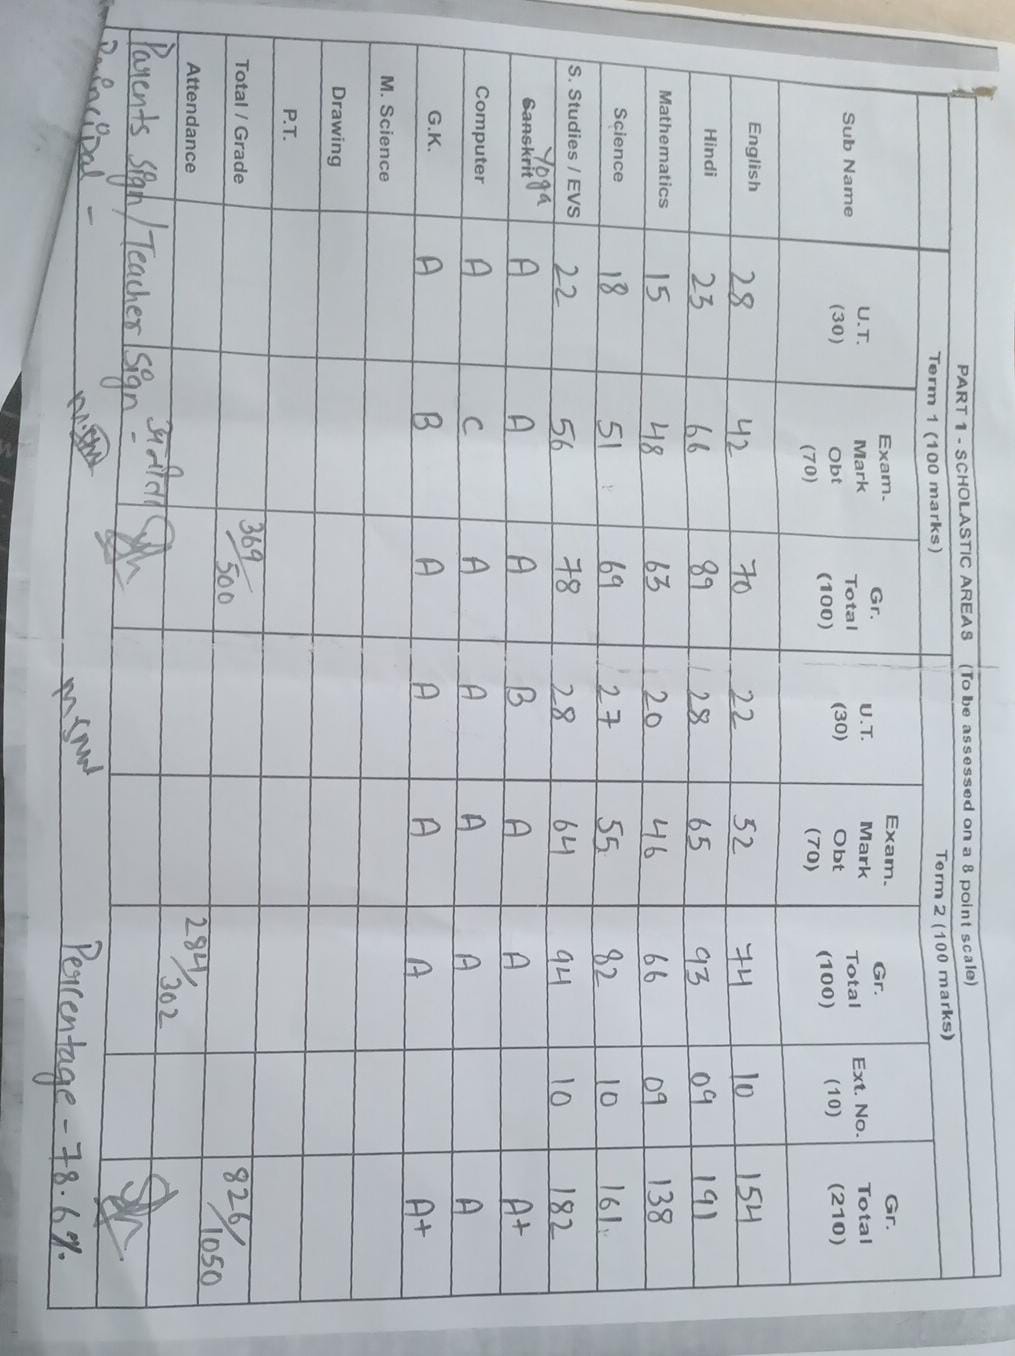 PART 1 - SCHOLASTIC AREAS (To be assessed on a 8 point scale)
Term 1 (100 marks) Term 2 (100 marks)
Sub Name U.T. (30) Exam. Mark Obt (70) Gr. Total (100) U.T. (30) Exam. Mark Obt (70) Gr. Total (100) Ext. No. (10) Gr. Total (210)
English 28 42 70 22 52 74 10 154
Hindi 23 66 89 28 65 93 09 191
Mathematics 15 48 63 20 46 66 09 138
Science 18 51 69 27 55 82 10 161
S. Studies / EVS 22 56 78 28 64 94 10 182
Sanskrit Yoga A A A B A A A+
Computer A C A A A A A
G.K. A B A A A A A+
M. Science
Drawing
P.T.
Total / Grade 369/500 826/1050
Attendance 284/302
Parents sign/Teacher sign -
Principal - Percentage - 78.6%.